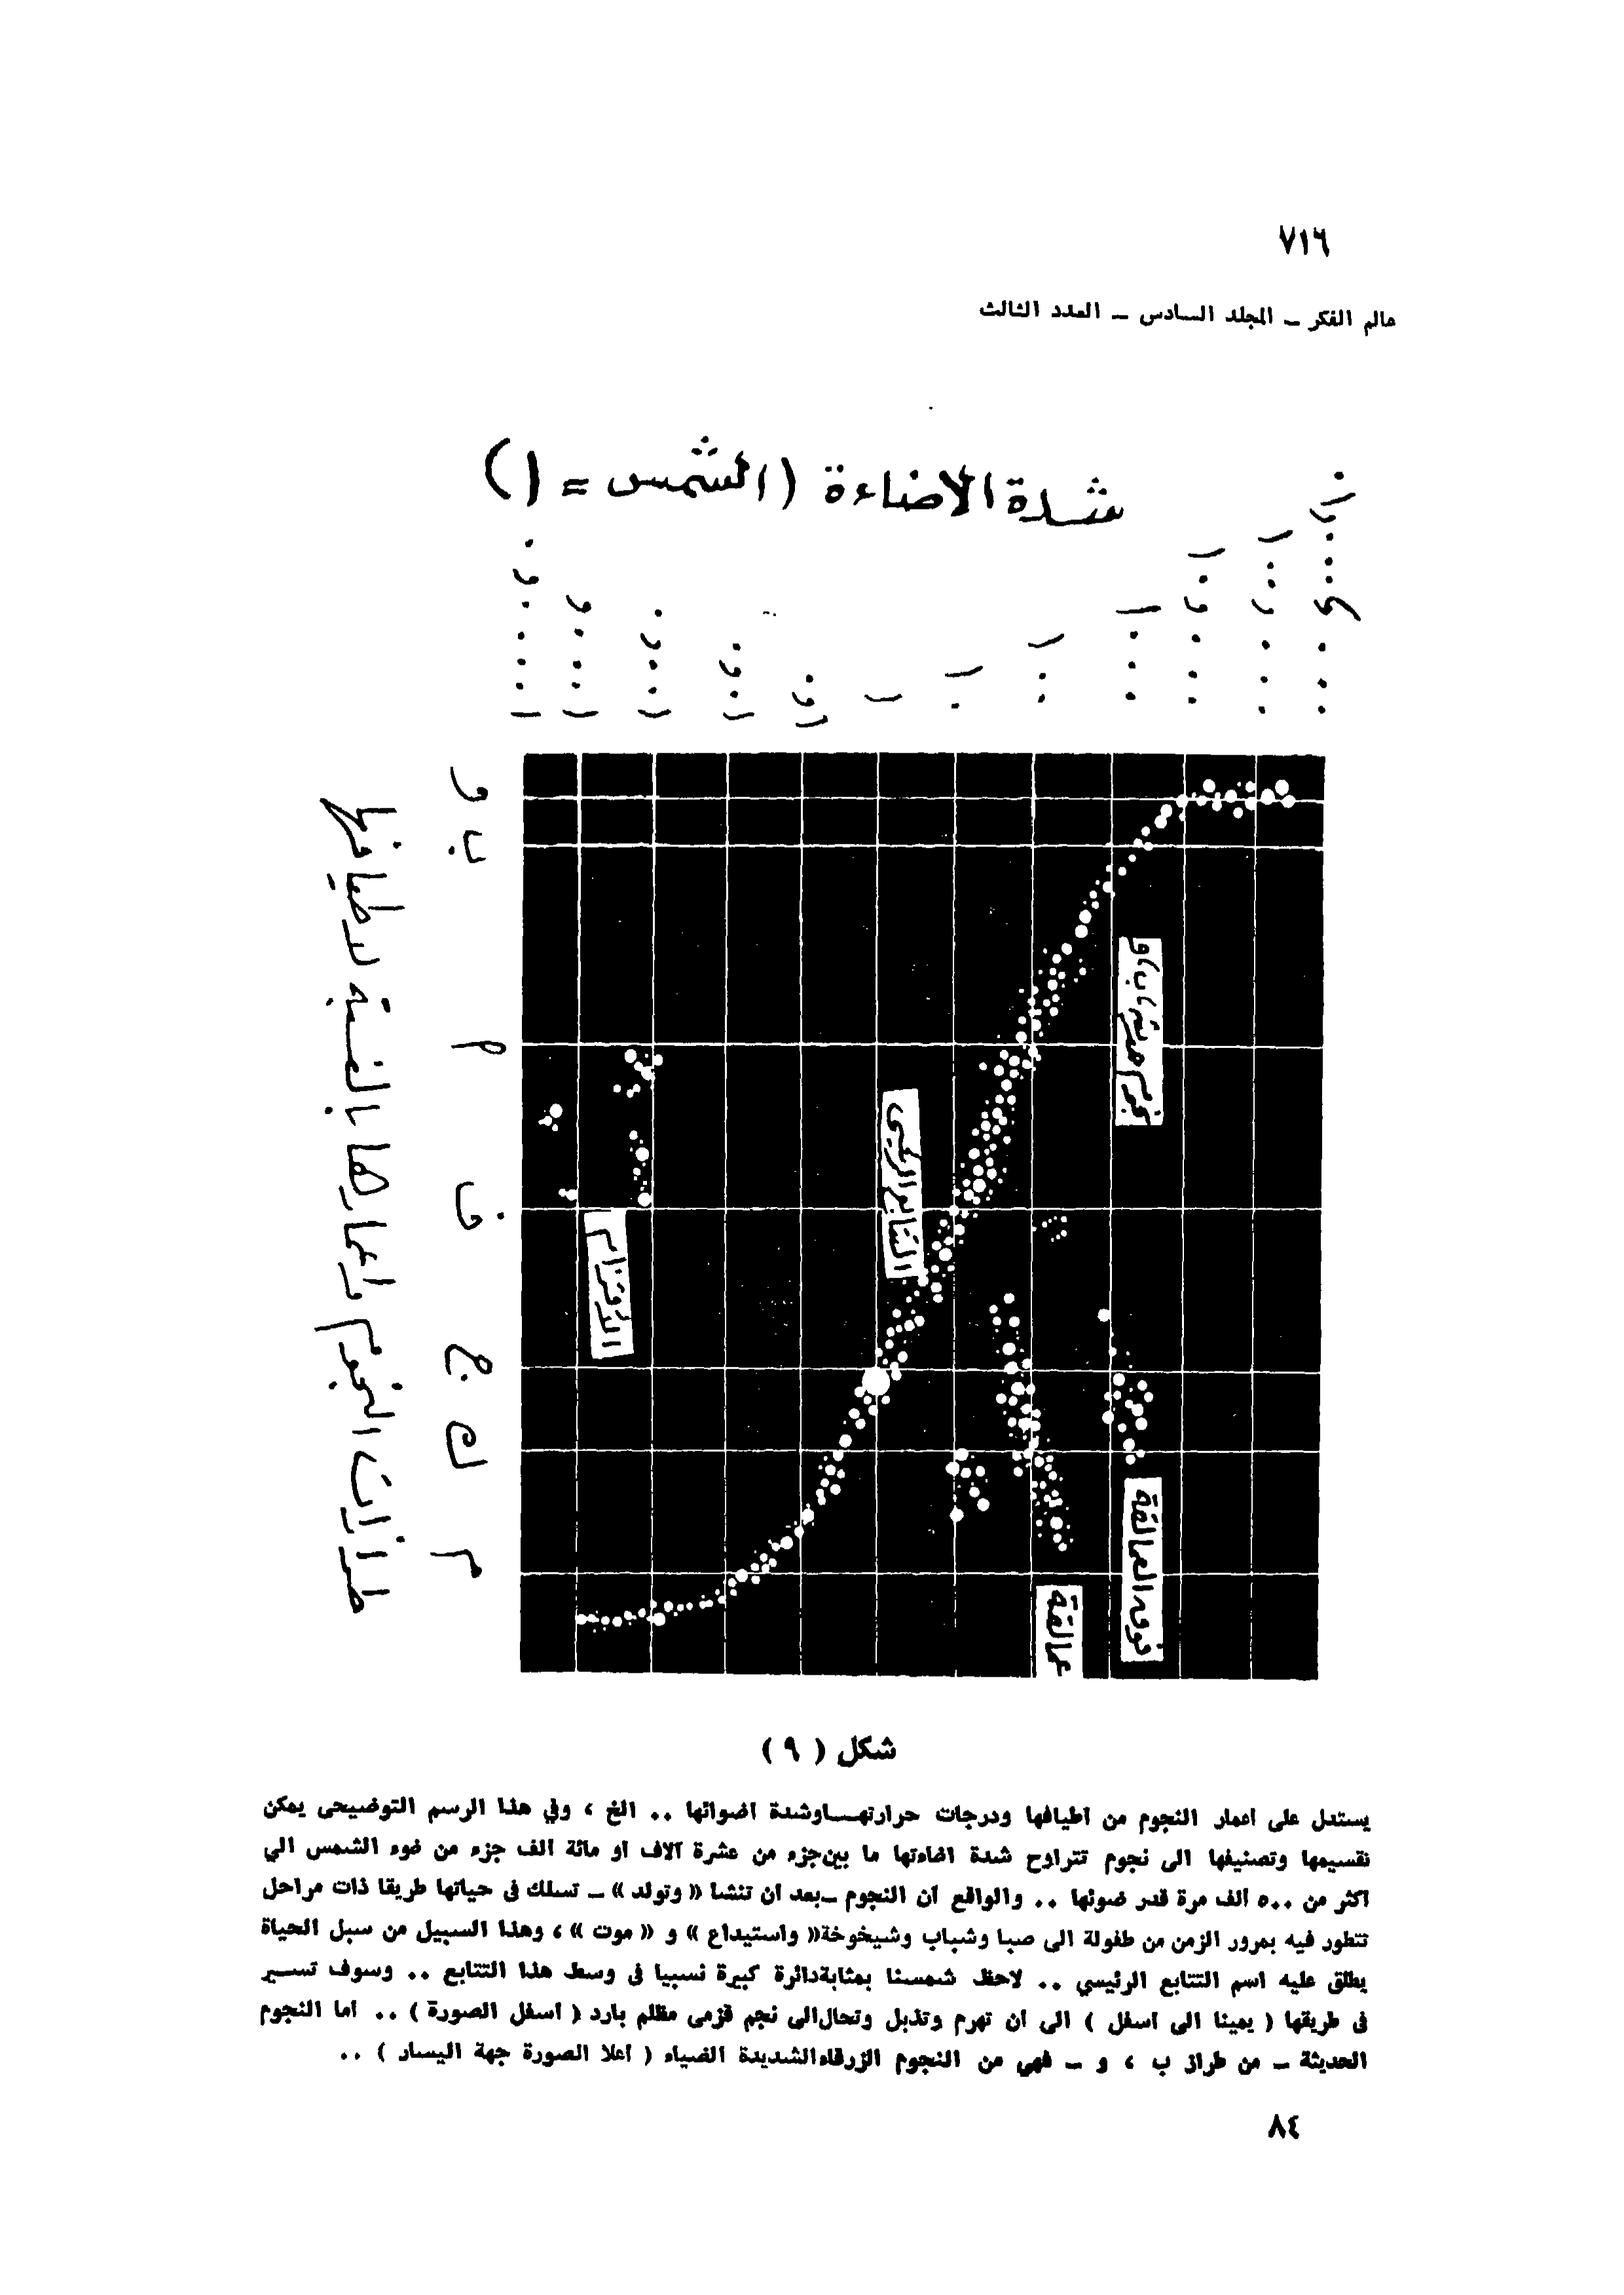 ٧١٦
عالم الفكر – المجلد السادس – العدد الثالث
شدة الاضاءة (الشمس = ١)
١
١٠
١٠٠
١٠٠٠
طرازات النجوم واعمارها بالنسبة لاطيافها
و
ب
أ
ف
ج
ك
م
نجوم حديثة، ب، و
التتابع الرئيسى
الأقزام
فوق العمالقة
عمالقة
شكل ( ٩ )
يستدل على اعمار النجوم من أطيافها ودرجات حرارتهــا وشدة اضوائها .. الخ ، وفي هذا الرسم التوضيحى يمكن
تقسيمها وتصنيفها الى نجوم تتراوح شدة اضاءتها ما بين جزء من عشرة آلاف او مائة الف جزء من ضوء الشمس الي
اكثر من ٥٠٠ ألف مرة قدر ضوئها .. والواقع أن النجوم – بعد ان تنشا « وتولد » – تسلك فى حياتها طريقا ذات مراحل
تتطور فيه بمرور الزمن من طفولة الى صبا وشباب وشيخوخة « واستيداع » و « موت » ، وهذا السبيل من سبل الحياة
يطلق عليه اسم التتابع الرئيسي .. لاحظ شمسنا بمثابة دائرة كبيرة نسبيا فى وسط هذا التتابع .. وسوف تســير
فى طريقها ( يمينا الى اسفل ) الى ان تهرم وتذبل وتحال الى نجم قزمى مظلم بارد ( اسفل الصورة ) .. اما النجوم
الحديثة – من طراز ب ، و – فهي من النجوم الزرقاء الشديدة الضياء ( اعلا الصورة جهة اليسار ) ..
٨٤